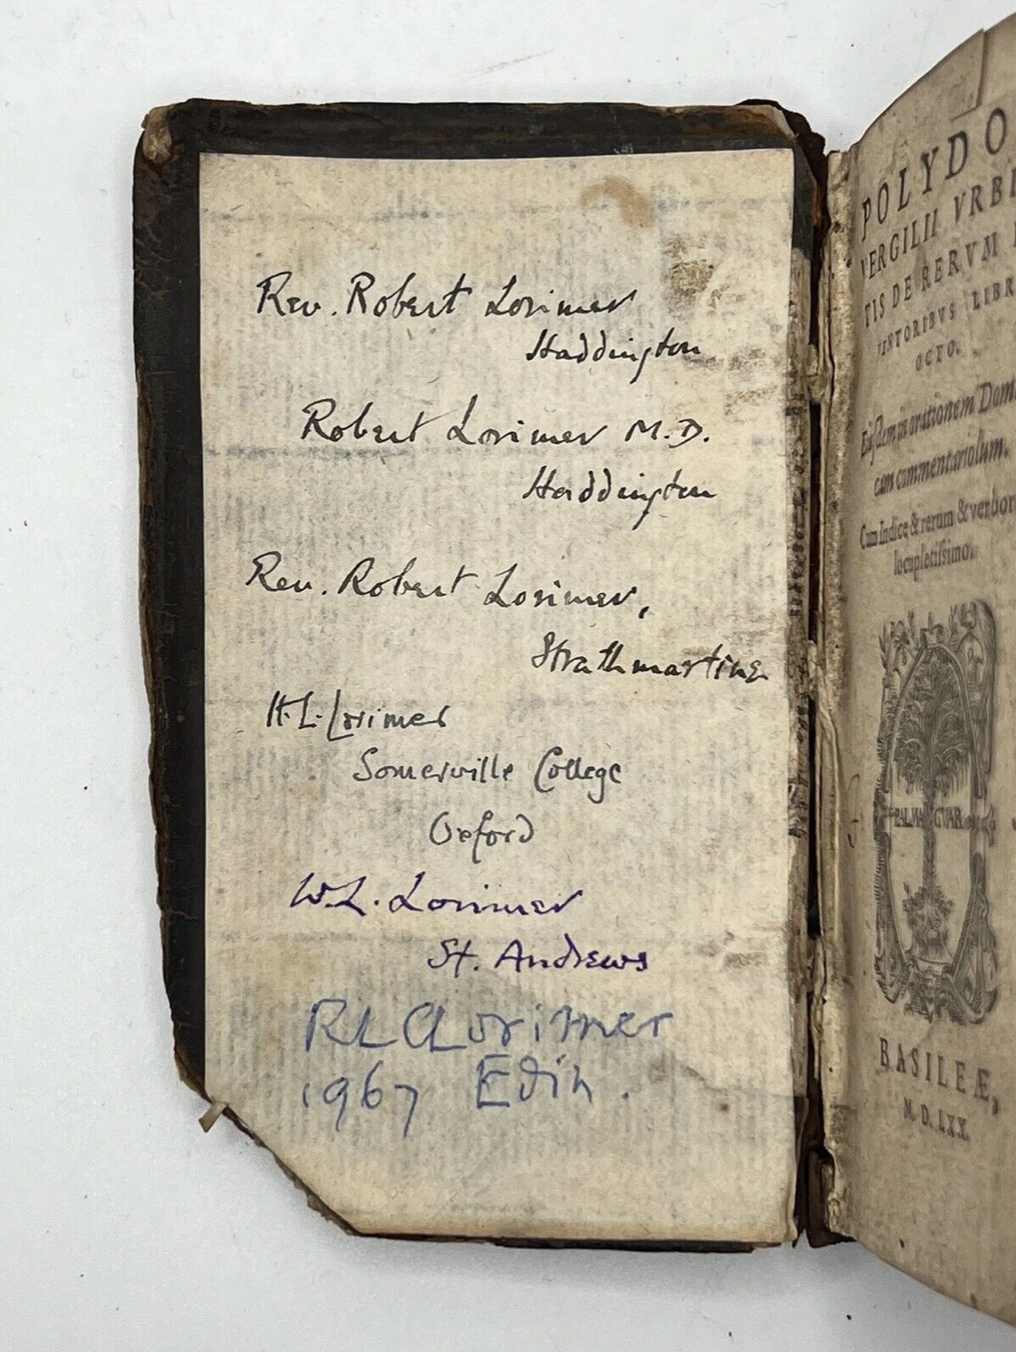 Rev. Robert Lorimer
Haddington
Robert Lorimer M.D.
Haddington
Rev. Robert Lorimer,
Strathmartine
H. L. Lorimer
Somerville College
Oxford
W. L. Lorimer
St. Andrews
R L C Lorimer
1967 Edin.
POLYDO
VERGILII VRBI
TIS DE RERVM I
VENTORIBVS LIBR
OCTO.
Eiusdem in orationem Dom
cum commentariolum.
Cum Indice & rerum & verbor
locupletissimo.
PALMA GVAR
BASILEÆ,
M. D. LXX.